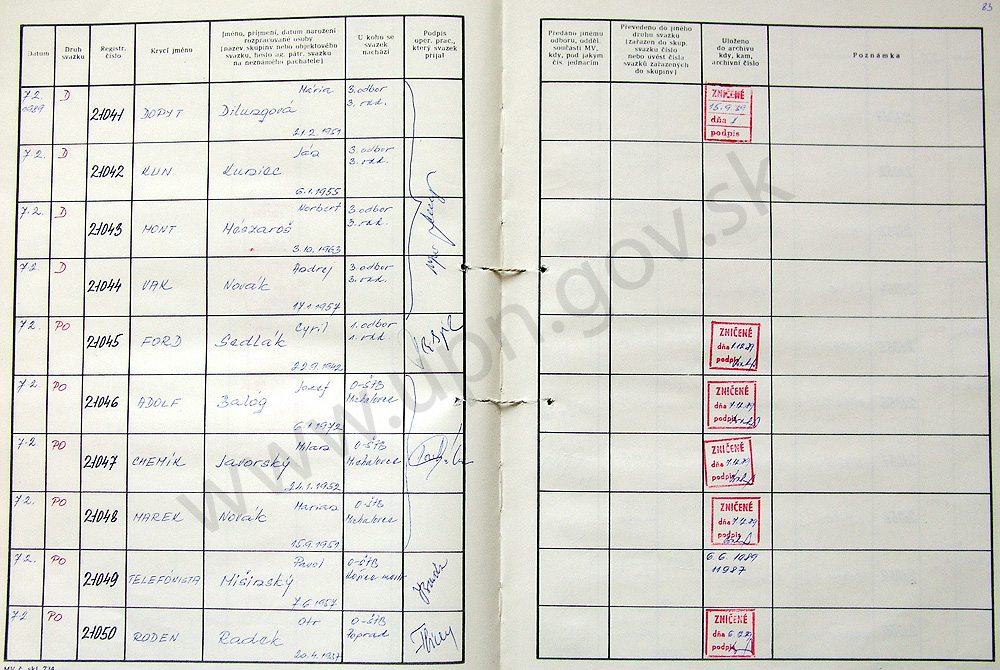 83
Datum
Druh svazku
Registr. číslo
Krycí jméno
Jméno, příjmení, datum narození
rozpracované osoby
(název skupiny nebo objektového
svazku, heslo az. pátr. svazku
na neznámého pachatele)
U koho se
svazek
nachází
Podpis
oper. prac.,
který svazek
přijal
Předáno jinému
odboru, odděl.
součásti MV,
kdy, pod jakým
čís. jednacím
Převedeno do jiného
druhu svazku
(zařazen do skup.
svazku číslo
nebo uvést čísla
svazků zařazených
do skupiny)
Uloženo
do archivu
kdy, kam,
archivní číslo
Poznámka
7.2. 1989 D 21041 DOPYT Mária
21.2.1951
3. odbor
3. rad.
ZNIČENÉ
dňa
podpis
7.2. D 21042 KUN Ján
6.1.1955
3. odbor
3. rad.
7.2. D 21043 MONT Norbert
Mészaroš
3.10.1963
3. odbor
3. rad.
7.2. D 21044 VAK Andrej
Novák
17.1.1957
3. odbor
3. rad.
7.2. PO 21045 FORD Cyril
Sedlák
22.9.1942
1. odbor
1. rad.
ZNIČENÉ
dňa
podpis
7.2. PO 21046 ADOLF Jozef
Balog
O-ŠtB
Michalovce
ZNIČENÉ
dňa 7.12.89
podpis
7.2. PO 21047 CHEMIK Milan
Javorský
24.1.1952
O-ŠtB
Michalovce
ZNIČENÉ
dňa 7.12.89
podpis
7.2. PO 21048 MAREK Marian
Novák
15.9.1951
O-ŠtB
Michalovce
ZNIČENÉ
dňa 7.12.89
podpis
7.2. PO 21049 TELEFONISTA Pavol
Mišinský
7.6.1957
O-ŠtB
6.6.1989
11987
7.2. PO 21050 RODEN Otr
Radek
20.4.1937
O-ŠtB
Poprad
ZNIČENÉ
dňa
podpis
www.upn.gov.sk